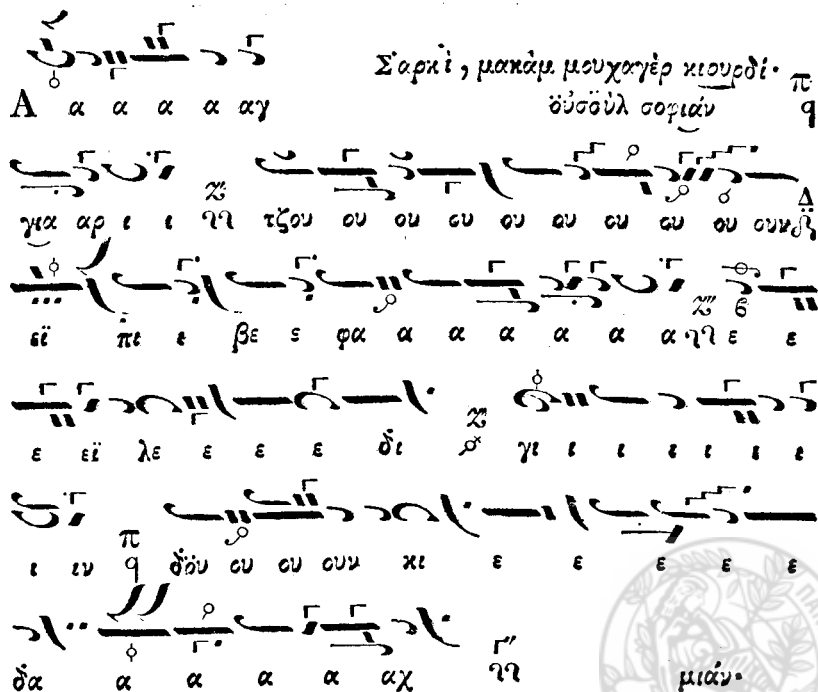 Σ̇αρκὶ, μακὰμ μουχαγὲρ κιουρδί· π
ο̈ύσο̈ὺλ σοφιάν q
Α α α α α αγ
για αρ ι ι Ζ τζου ου ου ου ου ου ου ου ου ουκ Δ
εϊ πι ι βε ε φα α α α α α α Ζ ε ε
ε εϊ λε ε ε ε δι Ζ γι ι ι ι ι ι ι
ι ιν π q δ̇ο̈υ ου ου ουν κι ε ε ε ε ε
δ̇α α α α α αχ Γ μιάν·